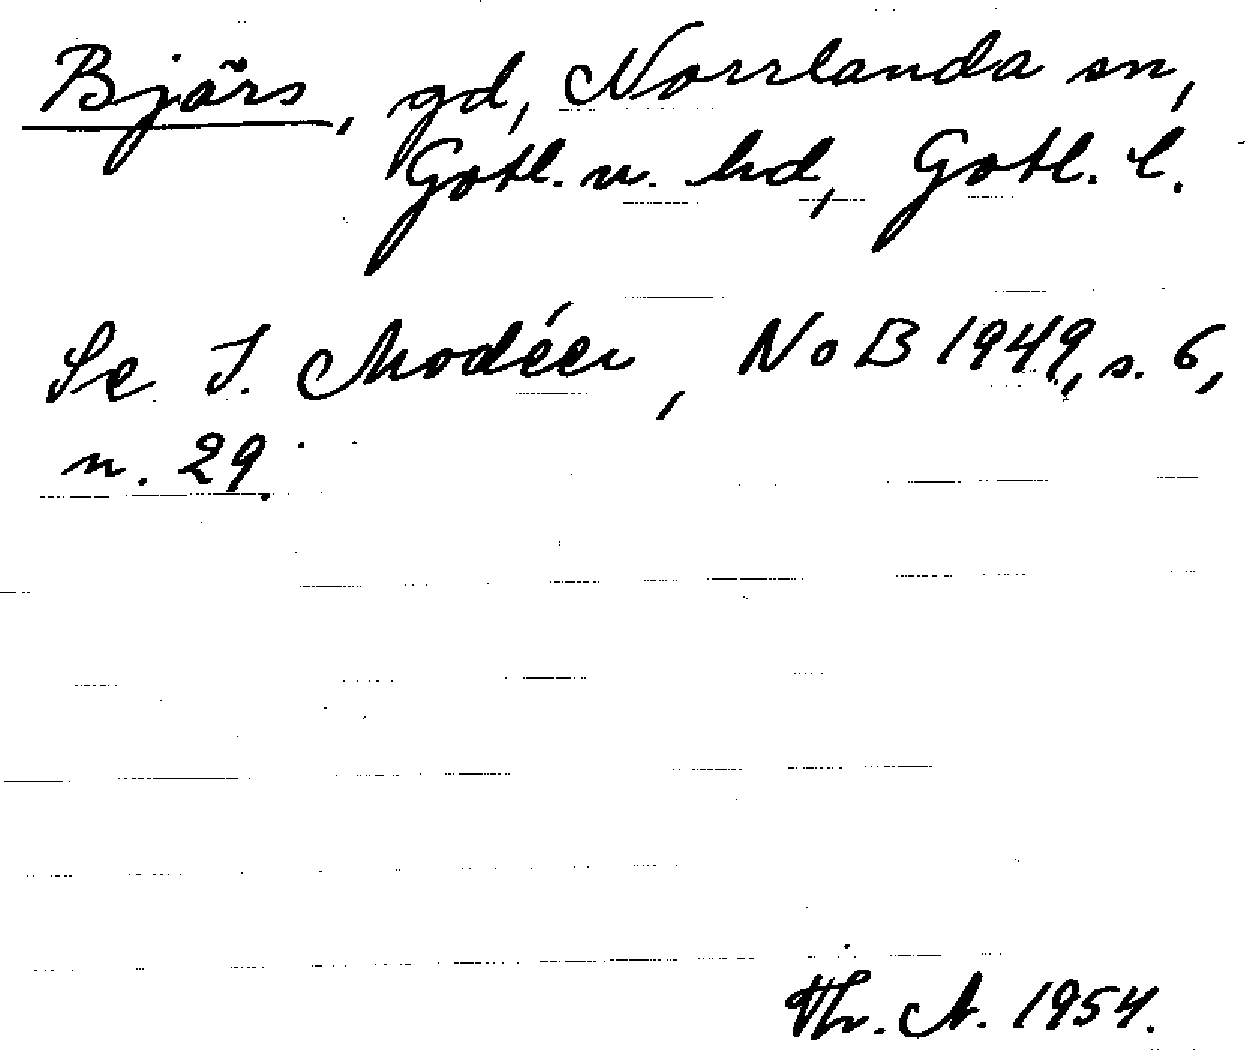 Bjärs, gd, Norrlanda sn,
Gotl. n. hd, Gotl. l.
Se I. Modéer, NoB 1949, s. 6,
n. 29.
Thr. A. 1954.